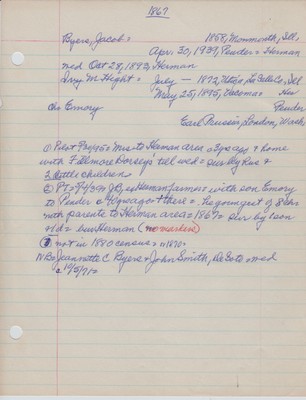 1867
Byers, Jacob = 1858, Monmouth, Ill,
Apr. 30, 1939, Pender = Herman
med Oct 29, 1893, Herman
Ivy M Hight = July — 1872, Utica, LaSalle Co, Ill
May 25, 1895, Tacoma = Her
Pender
ch Emory
Earl Mussin, London, Wash
① Rept = Mrs to Herman area a 3 yr ago & home
with Fillmore Dorseys tell wed = sur by Rus &
3 little children
② PT = 5/4/39 = J B, a Herman farmer with son Emory
to Pender c 40 yr ago & there = the youngest of 8 chn
with parents to Herman area = 1867 = sur by 1 son
& 1 d = bur Herman (no marker)
③ not in 1880 census = n 1870 =
N B = Jeannette C Byers = John Smith, DeSoto = med